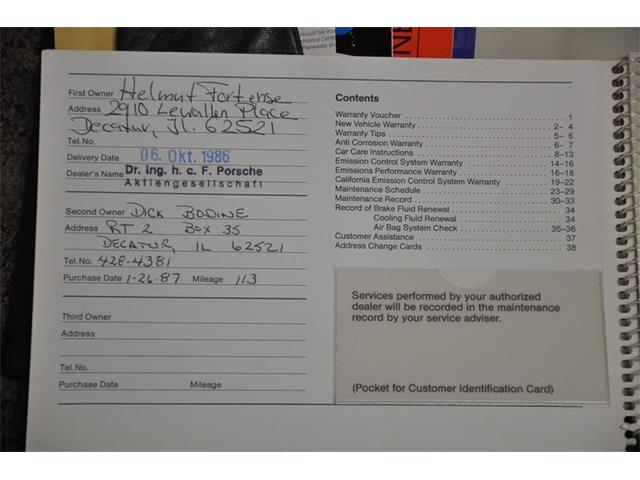 First Owner Helmut Fortense
Address 2910 Lewallen Place
Decatur, Il. 62521
Tel. No.
Delivery Date 06. Okt. 1986
Dealer's Name Dr. Ing. h. c. F. Porsche
Aktiengesellschaft
Second Owner DICK BODINE
Address RT 2 BOX 35
DECATUR, IL 62521
Tel. No. 428-4381
Purchase Date 1-26-87 Mileage 113
Third Owner
Address
Tel. No.
Purchase Date Mileage
Contents
Warranty Voucher 1
New Vehicle Warranty 2– 4
Warranty Tips 5– 6
Anti Corrosion Warranty 6– 7
Car Care Instructions 8–13
Emission Control System Warranty 14–16
Emissions Performance Warranty 16–18
California Emission Control System Warranty 19–22
Maintenance Schedule 23–29
Maintenance Record 30–33
Record of Brake Fluid Renewal 34
Cooling Fluid Renewal 34
Air Bag System Check 35–36
Customer Assistance 37
Address Change Cards 38
Services performed by your authorized
dealer will be recorded in the maintenance
record by your service adviser.
(Pocket for Customer Identification Card)